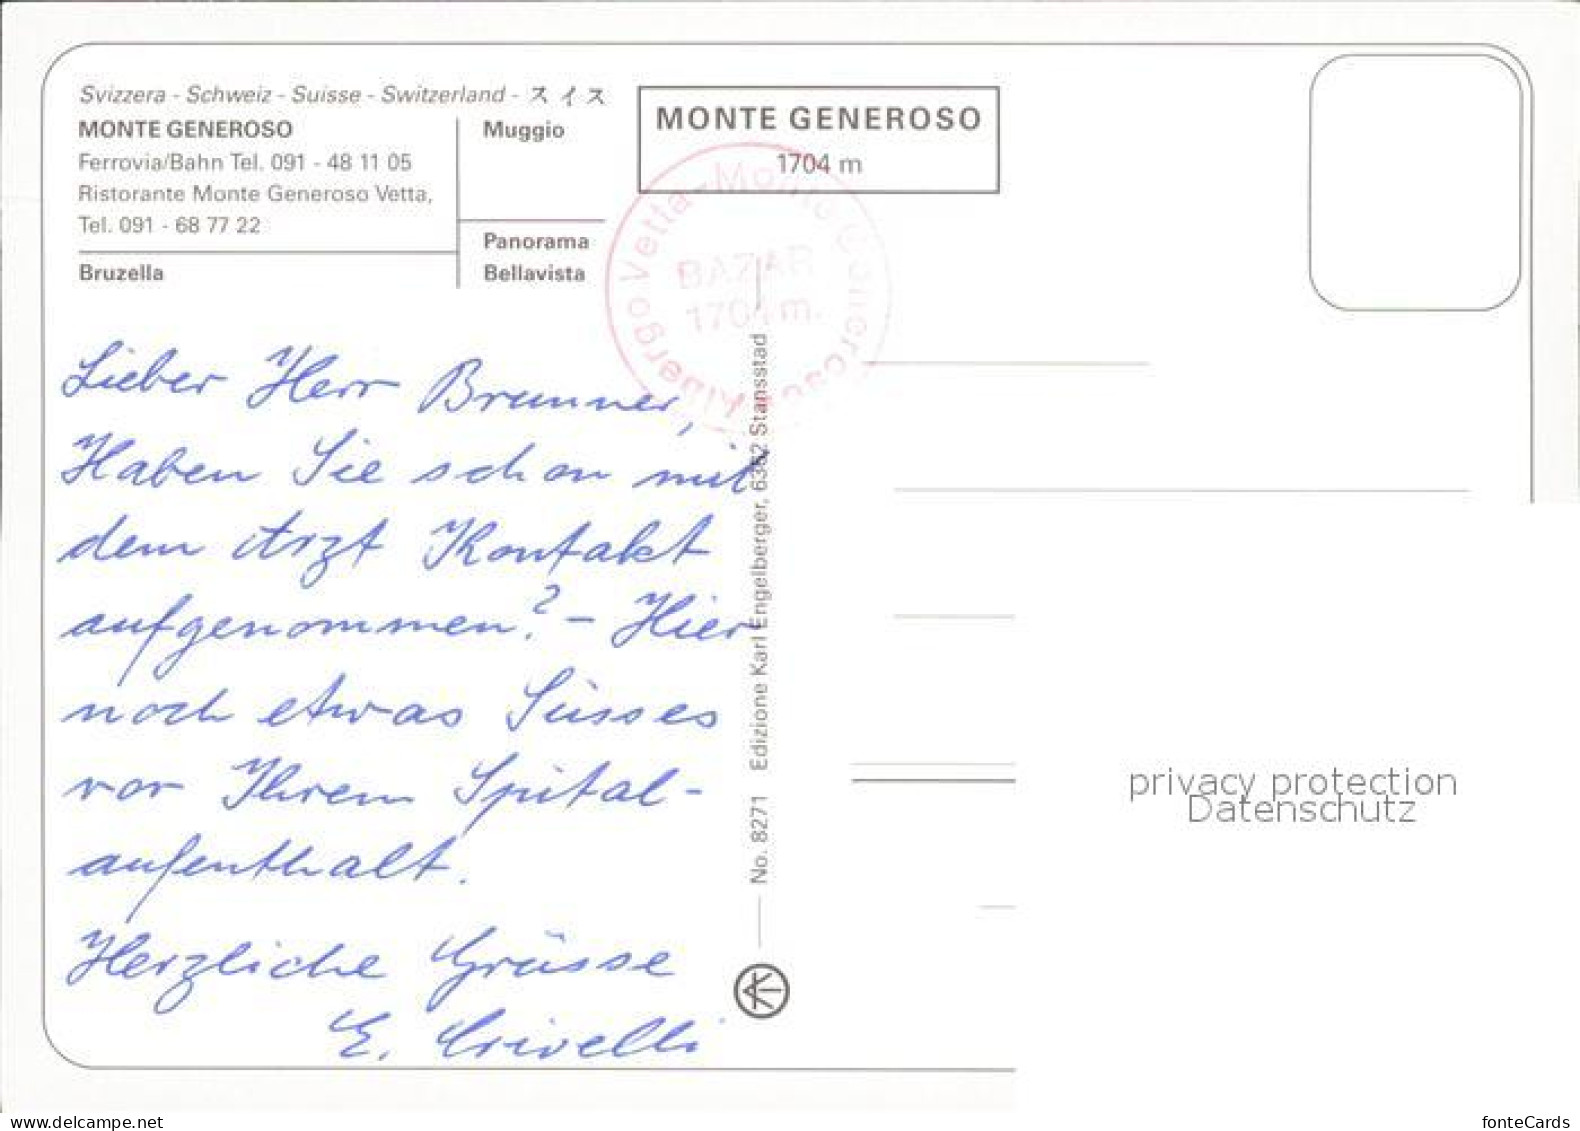 Svizzera - Schweiz - Suisse - Switzerland - スイス
MONTE GENEROSO
Ferrovia/Bahn Tel. 091 - 48 11 05
Ristorante Monte Generoso Vetta,
Tel. 091 - 68 77 22
Bruzella
Muggio
Panorama
Bellavista
MONTE GENEROSO
1704 m
Albergo Vetta - Monte Generoso
BAZAR
1704 m.
Lieber Herr Brunner,
Haben Sie schon mit
dem Arzt Kontakt
aufgenommen? - Hier
noch etwas Süsses
vor Ihrem Spital-
aufenthalt.
Herzliche Grüsse
E. Crivelli
No. 8271 Edizione Karl Engelberger, 6362 Stansstad
privacy protection
Datenschutz
www.delcampe.net
fonteCards